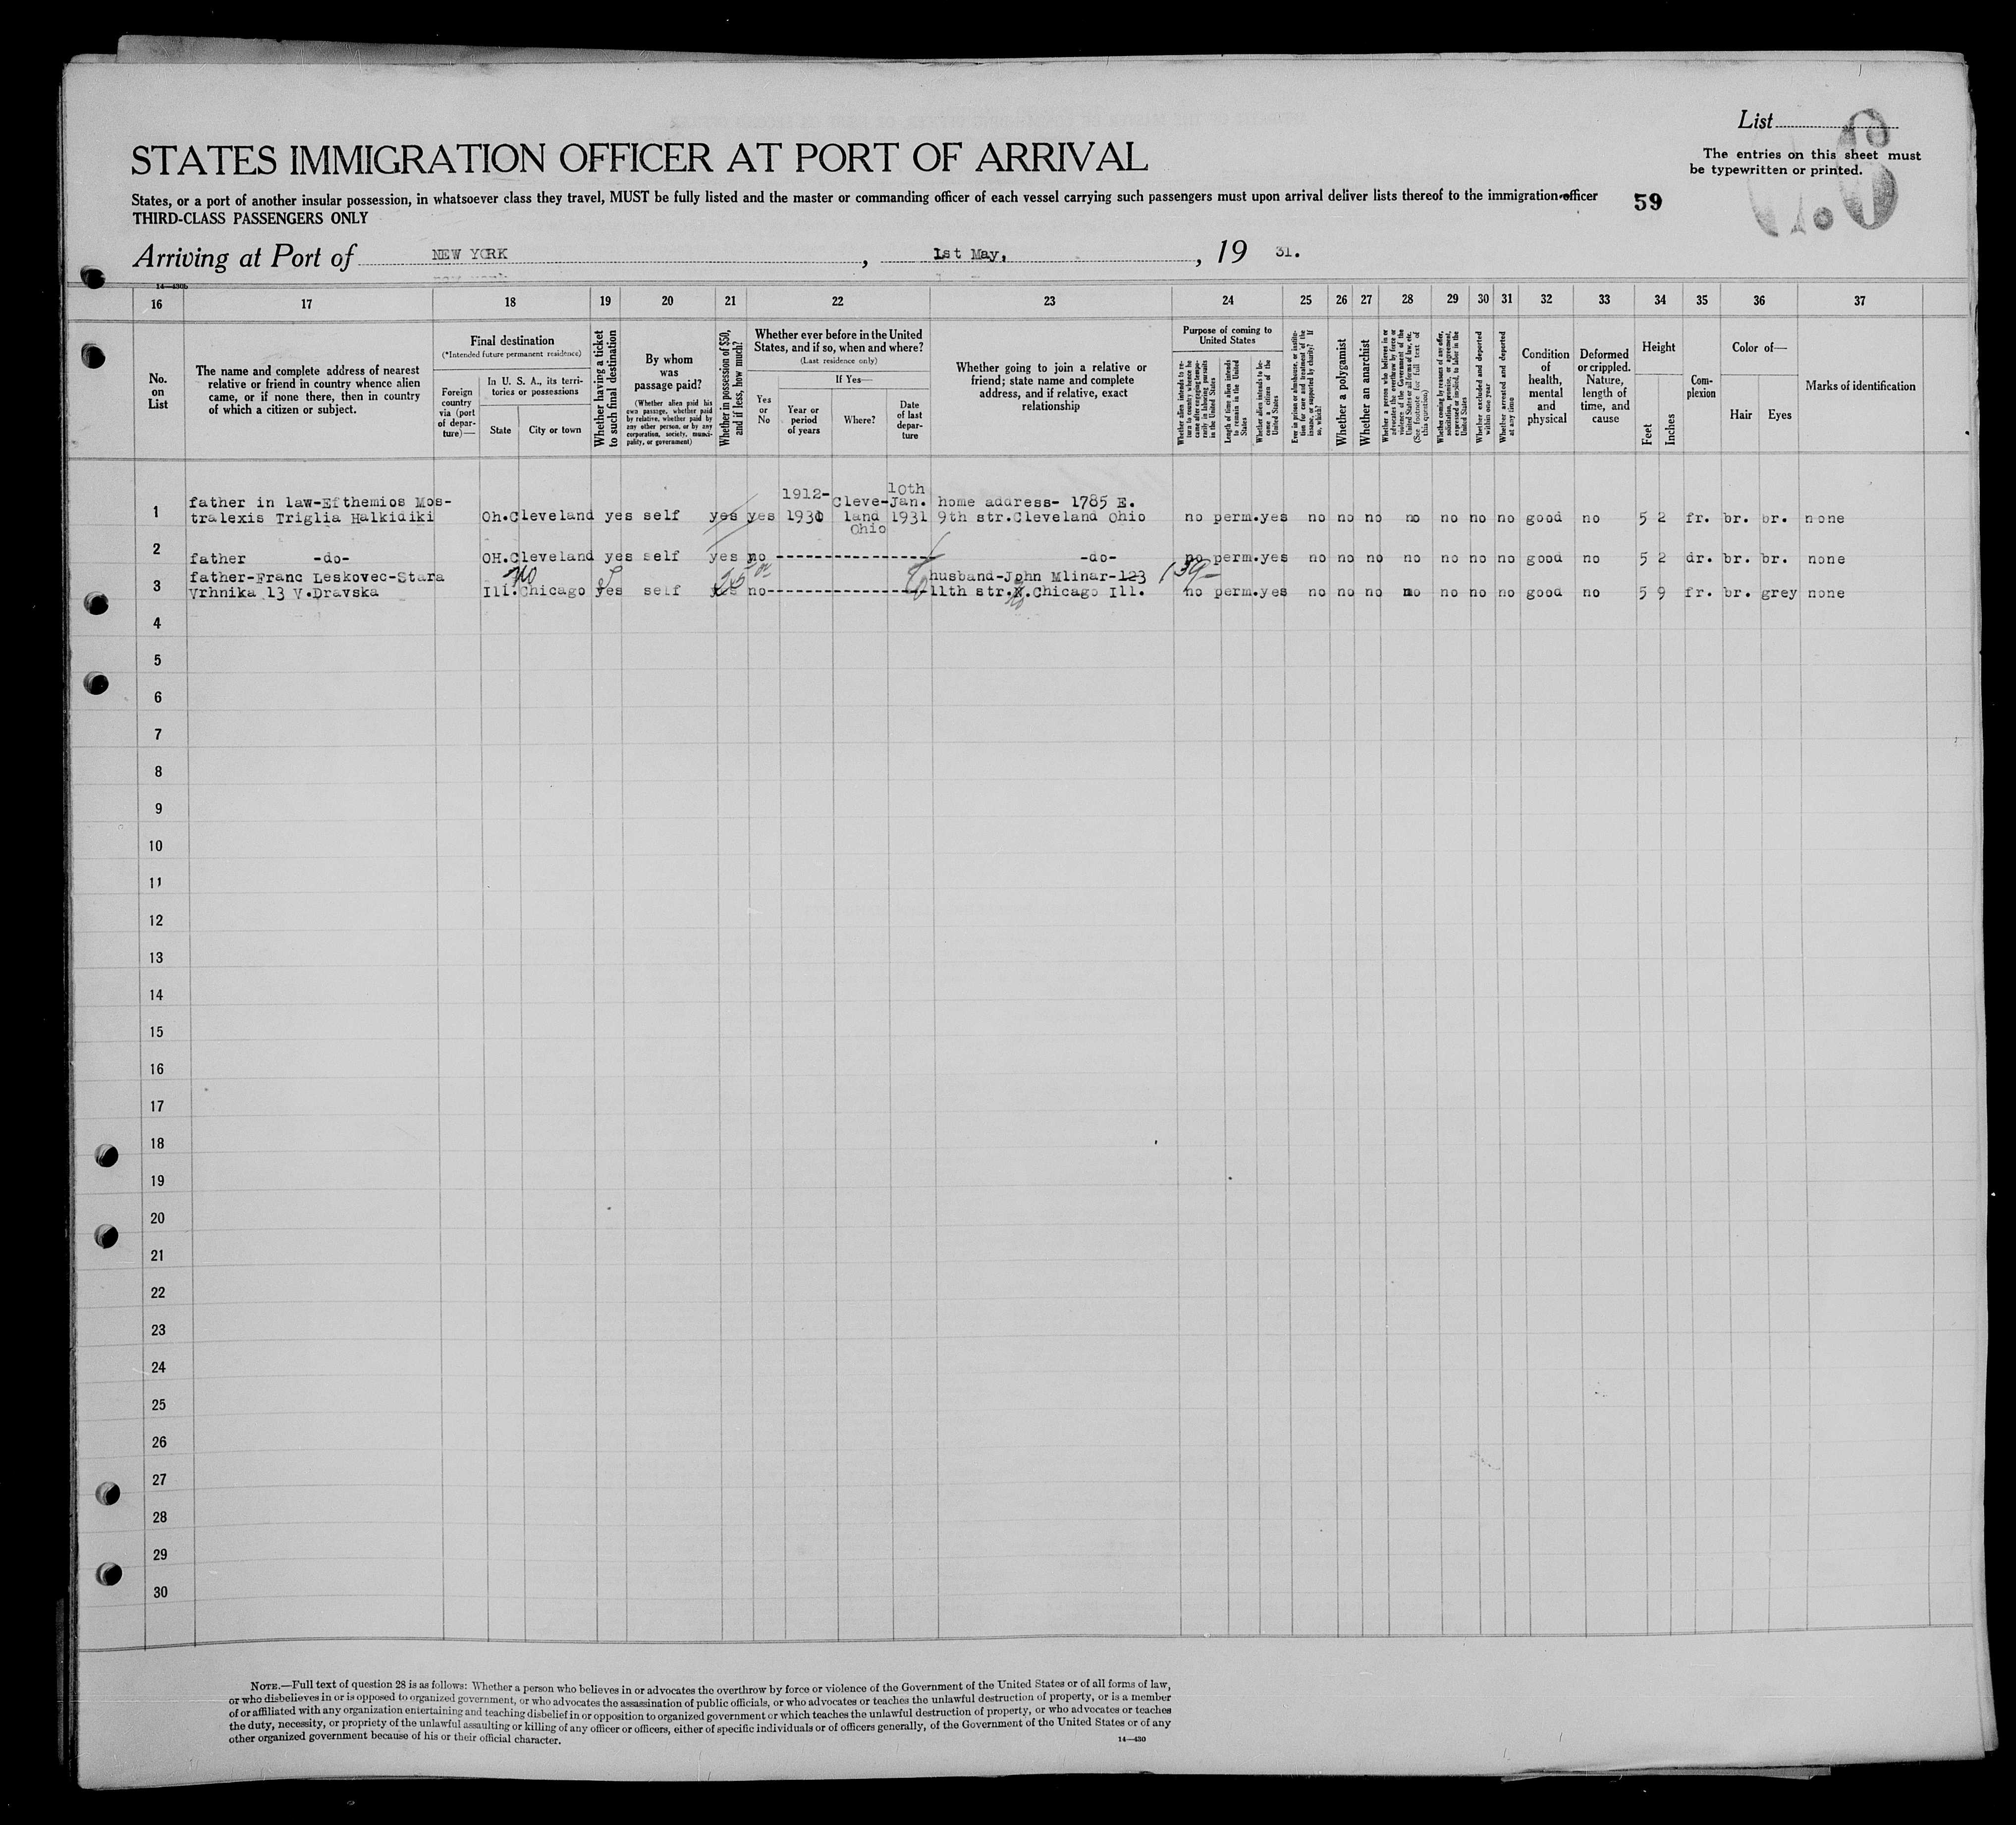 List
The entries on this sheet must
be typewritten or printed.
STATES IMMIGRATION OFFICER AT PORT OF ARRIVAL
States, or a port of another insular possession, in whatsoever class they travel, MUST be fully listed and the master or commanding officer of each vessel carrying such passengers must upon arrival deliver lists thereof to the immigration officer
THIRD-CLASS PASSENGERS ONLY
59
Arriving at Port of NEW YORK, 1st May, 19 31.
14—430b
16 17 18 19 20 21 22 23 24 25 26 27 28 29 30 31 32 33 34 35 36 37
No.
on
List
The name and complete address of nearest
relative or friend in country whence alien
came, or if none there, then in country
of which a citizen or subject.
Final destination
(*Intended future permanent residence)
Foreign
country
via (port
of depar-
ture)—
In U. S. A., its terri-
tories or possessions
State
City or town
Whether having a ticket
to such final destination
By whom
was
passage paid?
(Whether alien paid his
own passage, whether paid
by relative, whether paid by
any other person, or by any
corporation, society, munici-
pality, or government)
Whether in possession of $50,
and if less, how much?
Whether ever before in the United
States, and if so, when and where?
(Last residence only)
Yes
or
No
If Yes—
Year or
period
of years
Where?
Date
of last
depar-
ture
Whether going to join a relative or
friend; state name and complete
address, and if relative, exact
relationship
Purpose of coming to
United States
Whether alien intends to re-
turn to country whence he
came after engaging tempo-
rarily in laboring pursuits
in the United States
Length of time alien intends
to remain in the United
States
Whether alien intends to be-
come a citizen of the
United States
Ever in prison or almshouse, or institu-
tion for care and treatment of the
insane, or supported by charity? If
so, which?
Whether a polygamist
Whether an anarchist
Whether a person who believes in or
advocates the overthrow by force or
violence of the Government of the
United States or all forms of law, etc.
(See footnote for full text of
this question)
Whether coming by reason of any offer,
solicitation, promise, or agreement,
expressed or implied, to labor in the
United States
Whether excluded and deported
within one year
Whether arrested and deported
at any time
Condition
of
health,
mental
and
physical
Deformed
or crippled.
Nature,
length of
time, and
cause
Height
Feet
Inches
Com-
plexion
Color of—
Hair
Eyes
Marks of identification
1912- 10th
father in law-Efthemios Mos- Cleve- Jan. home address- 1785 E.
1 tralexis Triglia Halkidiki Oh. Cleveland yes self yes yes 1930 land 1931 9th str.Cleveland Ohio no perm. yes no no no no no no no good no 5 2 fr. br. br. none
Ohio
2 father -do- OH. Cleveland yes self yes no -do- no perm. yes no no no no no no no good no 5 2 dr. br. br. none
father-Franc Leskovec-Stara 25 husband-John Mlinar-123 139
3 Vrhnika 13 V.Dravska Ill. Chicago yes self yes no 11th str. Chicago Ill. no perm. yes no no no no no no no good no 5 9 fr. br. grey none
4
5
6
7
8
9
10
11
12
13
14
15
16
17
18
19
20
21
22
23
24
25
26
27
28
29
30
NOTE.—Full text of question 28 is as follows: Whether a person who believes in or advocates the overthrow by force or violence of the Government of the United States or of all forms of law,
or who disbelieves in or is opposed to organized government, or who advocates the assassination of public officials, or who advocates or teaches the unlawful destruction of property, or is a member
of or affiliated with any organization entertaining and teaching disbelief in or opposition to organized government or which teaches the unlawful destruction of property, or who advocates or teaches
the duty, necessity, or propriety of the unlawful assaulting or killing of any officer or officers, either of specific individuals or of officers generally, of the Government of the United States or of any
other organized government because of his or their official character.
14—430